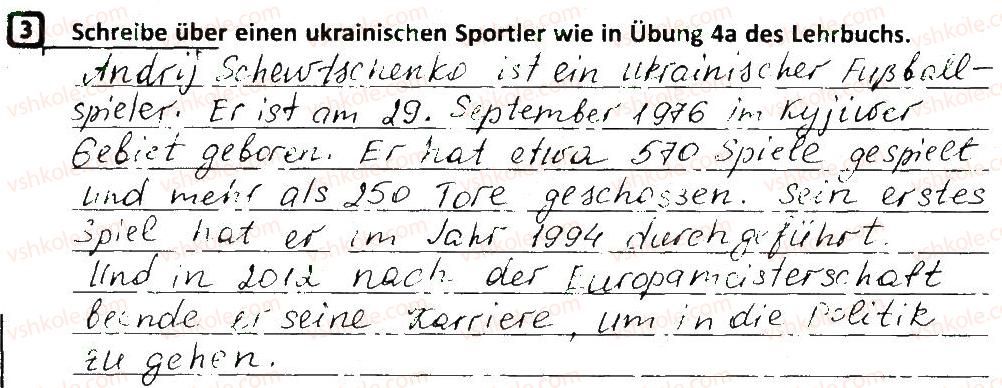 3 Schreibe über einen ukrainischen Sportler wie in Übung 4a des Lehrbuchs.
Andrij Schewtschenko ist ein ukrainischer Fußball-
spieler. Er ist am 29. September 1976 im Kyjiwer
Gebiet geboren. Er hat etwa 570 Spiele gespielt
und mehr als 250 Tore geschossen. Sein erstes
Spiel hat er im Jahr 1994 durchgeführt.
Und in 2012 nach der Europameisterschaft
beende er seine Karriere, um in die Politik
zu gehen.